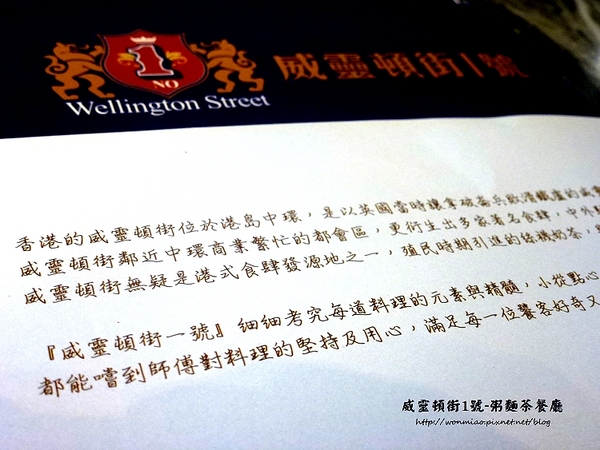 1
NO
Wellington Street
威靈頓街1號
香港的威靈頓街位於港島中環，是以英國當時讓拿破崙兵敗滑鐵盧的威靈
威靈頓街鄰近中環商業繁忙的都會區，更衍生出多家著名食肆，中外
威靈頓街無疑是港式食肆發源地之一，殖民時期引進的絲襪奶茶，
『威靈頓街一號』細細考究每道料理的元素與精髓，小從點心
都能嚐到師傅對料理的堅持及用心，滿足每一位饕客好奇又
威靈頓街1號-粥麵茶餐廳
http://wonmiao.pixnet.net/blog